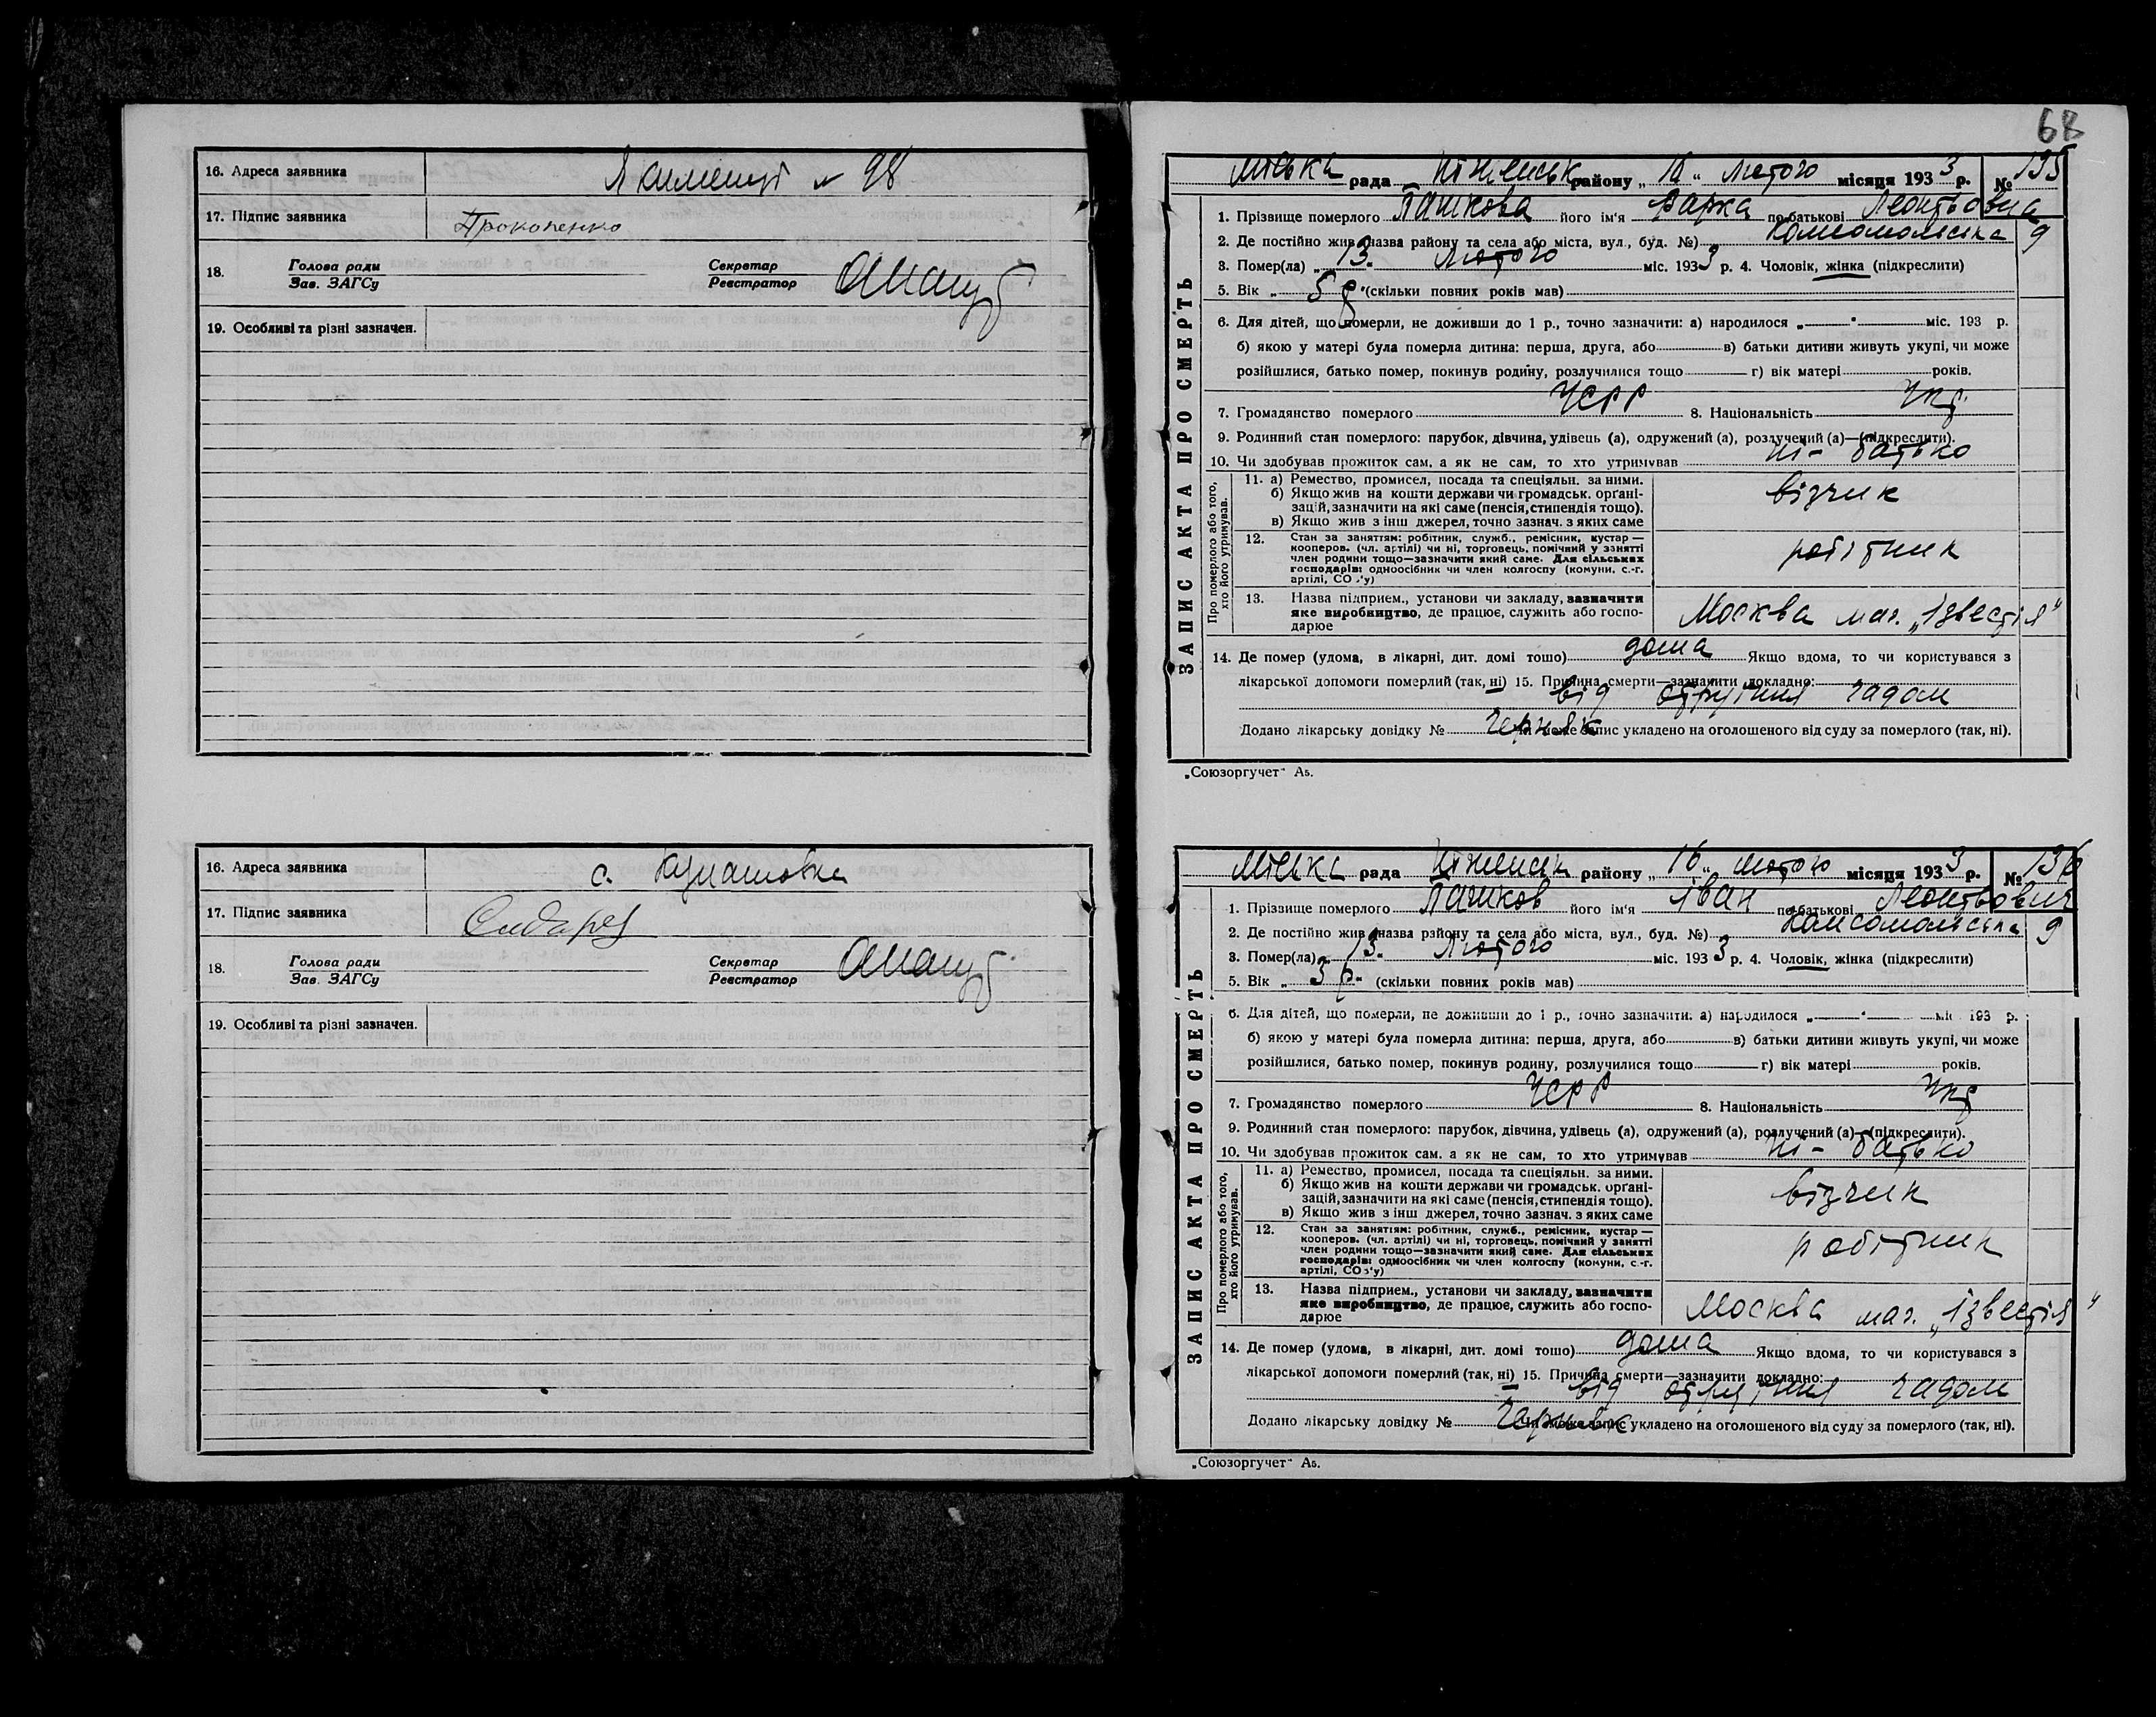 16. Адреса заявника
17. Підпис заявника Прокопенко
18. Голова ради
Зав. ЗАГСу
Секретар
Реєстратор
19. Особливі та різні зазначен.
16. Адреса заявника с.
17. Підпис заявника
18. Голова ради
Зав. ЗАГСу
Секретар
Реєстратор
19. Особливі та різні зазначен.
ЗАПИС АКТА ПРО СМЕРТЬ
Міська рада Ніженськ району „ 16 “ лютого місяця 1933 р. № 135
1. Прізвище померлого Пашкова його ім'я по батькові Леонтьовна
2. Де постійно жив (назва району та села або міста, вул., буд. №) Комсомольська 9
3. Помер(ла) „ 13 “ Лютого міс. 1933 р. 4. Чоловік, жінка (підкреслити)
5. Вік „ 5 р. “ (скільки повних років мав)
6. Для дітей, що померли, не доживши до 1 р., точно зазначити: а) народилося „ “ міс. 193 р.
б) якою у матері була померла дитина: перша, друга, або в) батьки дитини живуть укупі, чи може
розійшлися, батько помер, покинув родину, розлучилися тощо г) вік матері років.
7. Громадянство померлого УСРР 8. Національність Укр.
9. Родинний стан померлого: парубок, дівчина, удівець (а), одружений (а), розлучений (а)—(підкреслити).
10. Чи здобував прожиток сам, а як не сам, то хто утримував ні – батько
Про померлого або того, хто його утримував.
11. а) Ремество, промисел, посада та спеціяльн. за ними.
б) Якщо жив на кошти держави чи громадськ. орґані-
зацій, зазначити на які саме (пенсія, стипендія тощо).
в) Якщо жив з інш джерел, точно зазнач. з яких саме
візчик
12. Стан за заняттям: робітник, служб., ремісник, кустар —
кооперов. (чл. артілі) чи ні, торговець, помічний у занятті
член родини тощо—зазначити який саме. Для сільських
господарів: одноосібник чи член колгоспу (комуни, с.-г.
артілі, СОЗ'у)
робітник
13. Назва підприєм., установи чи закладу, зазначити
яке виробництво, де працює, служить або госпо-
дарює
Москва маг. „Ізвестія“
14. Де помер (удома, в лікарні, дит. домі тошо) дома Якщо вдома, то чи користувався з
лікарської допомоги померлий (так, ні) 15. Причина смерти—зазначити докладно:
від отруєння чадом
Додано лікарську довідку № Черняк Чи може запис укладено на оголошеного від суду за померлого (так, ні).
„Союзоргучет“ А5.
ЗАПИС АКТА ПРО СМЕРТЬ
Міська рада Ніженськ району „ 16 “ лютого місяця 1933 р. № 136
1. Прізвище померлого Пашков його ім'я Іван по батькові Леонтьович
2. Де постійно жив (назва району та села або міста, вул., буд. №) Комсомольська 9
3. Помер(ла) „ 13 “ Лютого міс. 1933 р. 4. Чоловік, жінка (підкреслити)
5. Вік „ 3 р. “ (скільки повних років мав)
6. Для дітей, що померли, не доживши до 1 р., точно зазначити: а) народилося „ “ міс. 193 р.
б) якою у матері була померла дитина: перша, друга, або в) батьки дитини живуть укупі, чи може
розійшлися, батько помер, покинув родину, розлучилися тощо г) вік матері років.
7. Громадянство померлого УСРР 8. Національність Укр
9. Родинний стан померлого: парубок, дівчина, удівець (а), одружений (а), розлучений (а)—(підкреслити).
10. Чи здобував прожиток сам, а як не сам, то хто утримував ні – батько
Про померлого або того, хто його утримував.
11. а) Ремество, промисел, посада та спеціяльн. за ними.
б) Якщо жив на кошти держави чи громадськ. орґані-
зацій, зазначити на які саме (пенсія, стипендія тощо).
в) Якщо жив з інш джерел, точно зазнач. з яких саме
візчик
12. Стан за заняттям: робітник, служб., ремісник, кустар —
кооперов. (чл. артілі) чи ні, торговець, помічний у занятті
член родини тощо—зазначити який саме. Для сільських
господарів: одноосібник чи член колгоспу (комуни, с.-г.
артілі, СОЗ'у)
робітник
13. Назва підприєм., установи чи закладу, зазначити
яке виробництво, де працює, служить або госпо-
дарює
Москва маг. „Ізвестія“
14. Де помер (удома, в лікарні, дит. домі тошо) дома Якщо вдома, то чи користувався з
лікарської допомоги померлий (так, ні) 15. Причина смерти—зазначити докладно:
від отруєння чадом
Додано лікарську довідку № Черняк Чи може запис укладено на оголошеного від суду за померлого (так, ні).
„Союзоргучет“ А5.